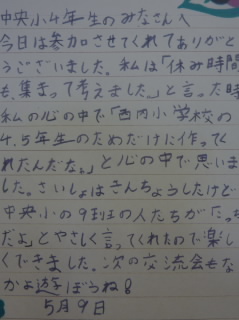 中央小4年生のみなさんへ
今日は参加させてくれてありがと
うございました。私は「休み時間
も、集まって考えました」と言った時
私の心の中で「西内小学校の
4.5年生のためだけに作ってく
れたんだな。」と心の中で思いま
した。さいしょはきんちょうしたけど
中央小の9班の人たちが「
だよ」とやさしく言ってくれたので楽し
くできました。次の交流会もな
かよ遊ぼうね!
5月9日